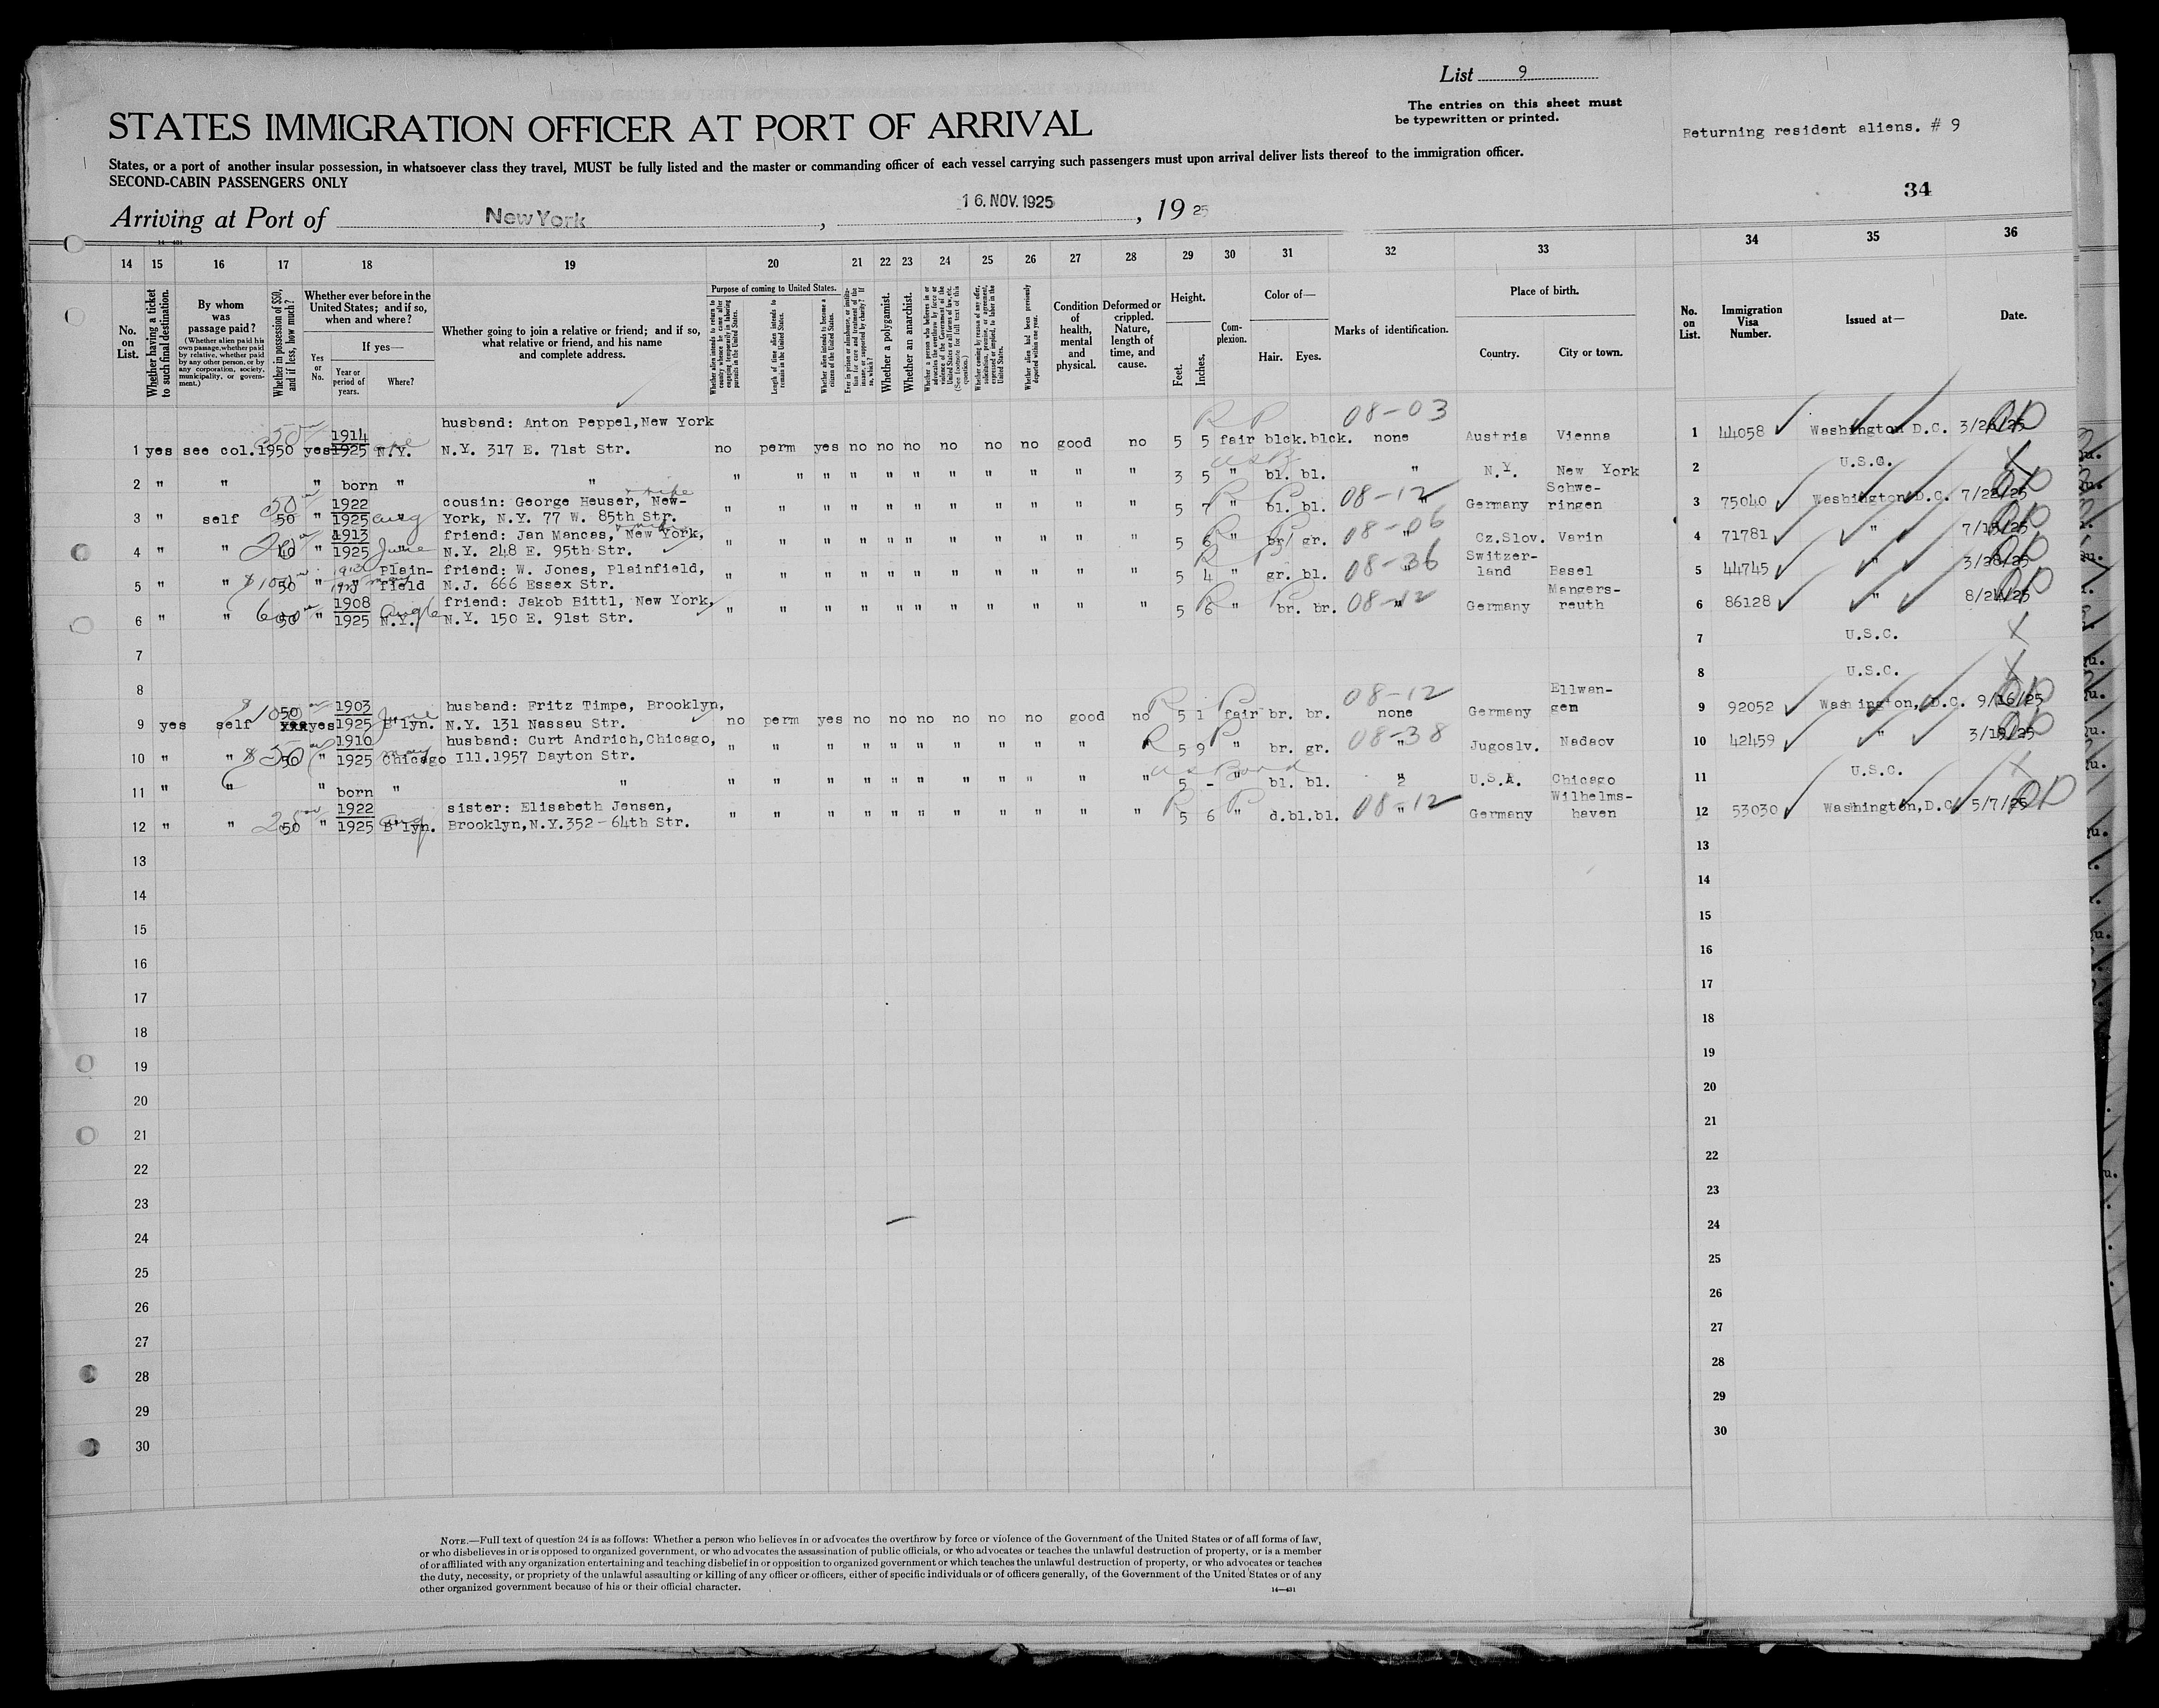 List 9
The entries on this sheet must
be typewritten or printed.
Returning resident aliens. # 9
STATES IMMIGRATION OFFICER AT PORT OF ARRIVAL
States, or a port of another insular possession, in whatsoever class they travel, MUST be fully listed and the master or commanding officer of each vessel carrying such passengers must upon arrival deliver lists thereof to the immigration officer.
SECOND-CABIN PASSENGERS ONLY
34
Arriving at Port of New York, 16. NOV. 1925, 19 25
14—431
14 15 16 17 18 19 20 21 22 23 24 25 26 27 28 29 30 31 32 33 34 35 36
No. on List.
Whether having a ticket to such final destination.
By whom was passage paid?
(Whether alien paid his own passage, whether paid by relative, whether paid by any other person, or by any corporation, society, municipality, or government.)
Whether in possession of $50, and if less, how much?
Whether ever before in the United States; and if so, when and where?
If yes—
Yes or No.
Year or period of years.
Where?
Whether going to join a relative or friend; and if so, what relative or friend, and his name and complete address.
Purpose of coming to United States.
Whether alien intends to return to country whence he came after engaging temporarily in laboring pursuits in the United States.
Length of time alien intends to remain in the United States.
Whether alien intends to become a citizen of the United States.
Ever in prison or almshouse, or institution for care and treatment of the insane, or supported by charity? If so, which?
Whether a polygamist.
Whether an anarchist.
Whether a person who believes in or advocates the overthrow by force or violence of the Government of the United States or all forms of law, etc. (See footnote for full text of this question.)
Whether coming by reason of any offer, solicitation, promise, or agreement, expressed or implied, to labor in the United States.
Whether alien had been previously deported within one year.
Condition of health, mental and physical.
Deformed or crippled. Nature, length of time, and cause.
Height.
Feet. Inches.
Complexion.
Color of—
Hair. Eyes.
Marks of identification.
Place of birth.
Country. City or town.
No. on List.
Immigration Visa Number.
Issued at—
Date.
husband: Anton Peppel, New York 08-03
1 yes see col. 19 50 yes 1914 1925 N.Y. N.Y. 317 E. 71st Str. no perm yes no no no no no no good no 5 5 fair blck. blck. none Austria Vienna 1 44058 Washington D.C.
2 " " " born " " " " " " " " " " " " " 3 5 " bl. bl. " N.Y. New York 2 U.S.C.
3 " self 50 " 1922 1925 aug cousin: George Heuser, New-
York, N.Y. 77 W. 85th Str. " " " " " " " " " " " 5 7 " bl. bl. 08-12 " Germany Schwe-
ringen 3 75040 Washington D.C. 7/22/25
4 " " 40 " 1913 1925 June friend: Jan Mances, New York,
N.Y. 248 E. 95th Str. " " " " " " " " " " " 5 6 " br. gr. 08-06 " Cz.Slov. Varin 4 71781 " 7/15/25
5 " " 50 " " Plain-
field friend: W. Jones, Plainfield,
N.J. 666 Essex Str. " " " " " " " " " " " 5 4 " gr. bl. 08-36 " Switzer-
land Basel 5 44745 " 3/28/25
6 " " 50 " 1908 1925 N.Y. friend: Jakob Bittl, New York,
N.Y. 150 E. 91st Str. " " " " " " " " " " " 5 6 " br. br. 08-12 " Germany Mangers-
reuth 6 86128 "
7 7 U.S.C.
8 8 U.S.C.
9 yes self 50 yes 1903 1925 B'lyn. husband: Fritz Timpe, Brooklyn,
N.Y. 131 Nassau Str. no perm yes no no no no no no good no 5 1 fair br. br. 08-12 none Germany Ellwan-
gen 9 92052 Washington, D.C. 9/16/25
10 " " 50 " 1910 1925 Chicago husband: Curt Andrich, Chicago,
Ill. 1957 Dayton Str. " " " " " " " " " " 5 9 " br. gr. 08-38 " Jugoslv. Nadaov 10 42459 "
11 " " " born " " " " " " " " " " " " " 5 - " bl. bl. " U.S.A. Chicago 11 U.S.C.
12 " " 50 " 1922 1925 B'lyn. sister: Elisabeth Jensen,
Brooklyn, N.Y. 352 - 64th Str. " " " " " " " " " " " 5 6 " d.bl. bl. 08-12 " Germany Wilhelms-
haven 12 53030 Washington, D.C. 5/7/25
13 13
14 14
15 15
16 16
17 17
18 18
19 19
20 20
21 21
22 22
23 23
24 24
25 25
26 26
27 27
28 28
29 29
30 30
NOTE.—Full text of question 24 is as follows: Whether a person who believes in or advocates the overthrow by force or violence of the Government of the United States or of all forms of law,
or who disbelieves in or is opposed to organized government, or who advocates the assassination of public officials, or who advocates or teaches the unlawful destruction of property, or is a member
of or affiliated with any organization entertaining and teaching disbelief in or opposition to organized government or which teaches the unlawful destruction of property, or who advocates or teaches
the duty, necessity, or propriety of the unlawful assaulting or killing of any officer or officers, either of specific individuals or of officers generally, of the Government of the United States or of any
other organized government because of his or their official character.
14—431